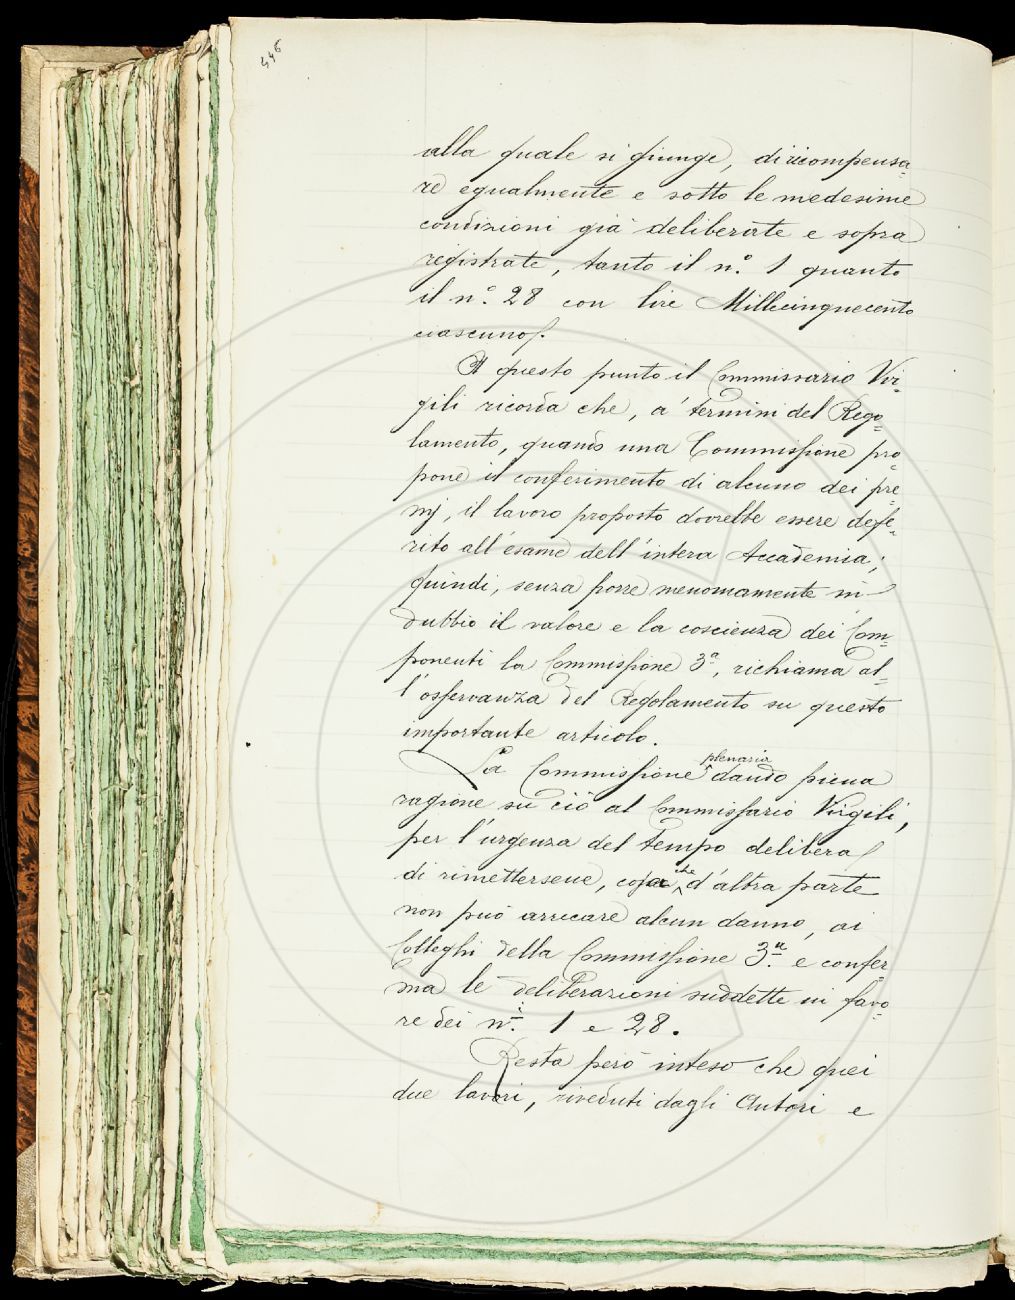 446
alla quale si giunge, di ricompensa=
re egualmente e sotto le medesime
condizioni già deliberate e sopra
registrate, tanto il n.° 1 quanto
il n.° 28 con lire Millecinquecento
ciascuno.
A questo punto il Commissario Vir=
gili ricorda che, a' termini del Rego=
lamento, quando una Commissione pro=
pone il conferimento di alcuno dei pre=
mj, il lavoro proposto dovrebbe essere defe=
rito all'esame dell'intera Accademia;
quindi, senza porre menomamente in
dubbio il valore e la coscienza dei Com=
ponenti la Commissione 3.a, richiama al=
l'osservanza del Regolamento su questo
importante articolo.
La Commissione plenaria dando piena
ragione su ciò al Commissario Virgili,
per l'urgenza del tempo delibera
di rimettersene, che d'altra parte
non può arrecare alcun danno, ai
Colleghi della Commissione 3.a e confer=
ma le deliberazioni suddette in favo=
re dei n.i 1 e 28.
Resta però inteso che quei
due lavori, riveduti dagli Autori e